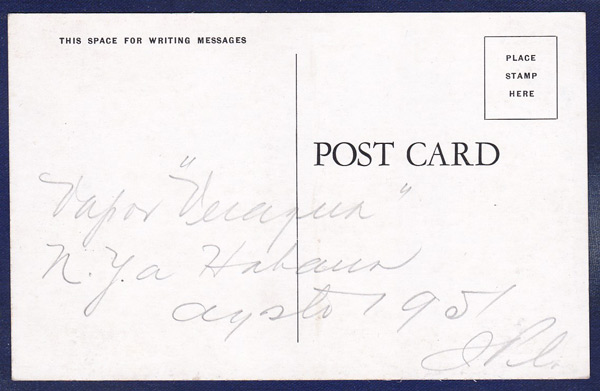 THIS SPACE FOR WRITING MESSAGES
PLACE
STAMP
HERE
POST CARD
Vapor "Veragua"
N.Y. a Habana
agosto 1951